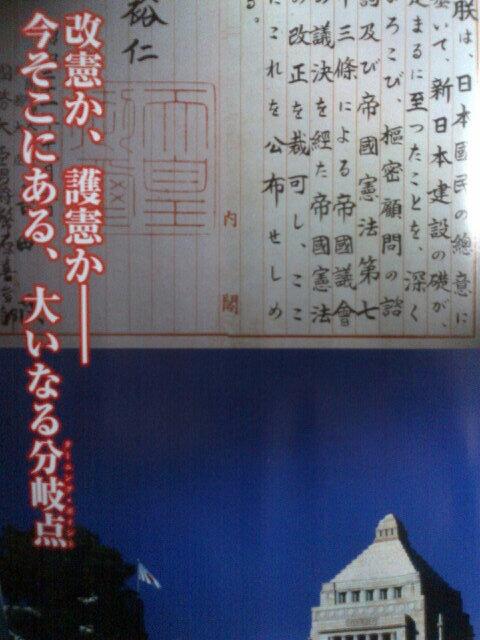 朕は、日本國民の總意に
基いて、新日本建設の礎が、
定まるに至つたことを、深く
ろこび、樞密顧問の諮
詢及び帝國憲法第七
十三條による帝國議會
の議決を経た帝國憲法
の改正を裁可し、ここ
にこれを公布せしめ
る。
内閣
裕仁
天皇
改憲か、護憲か――
今そこにある、大いなる分岐点